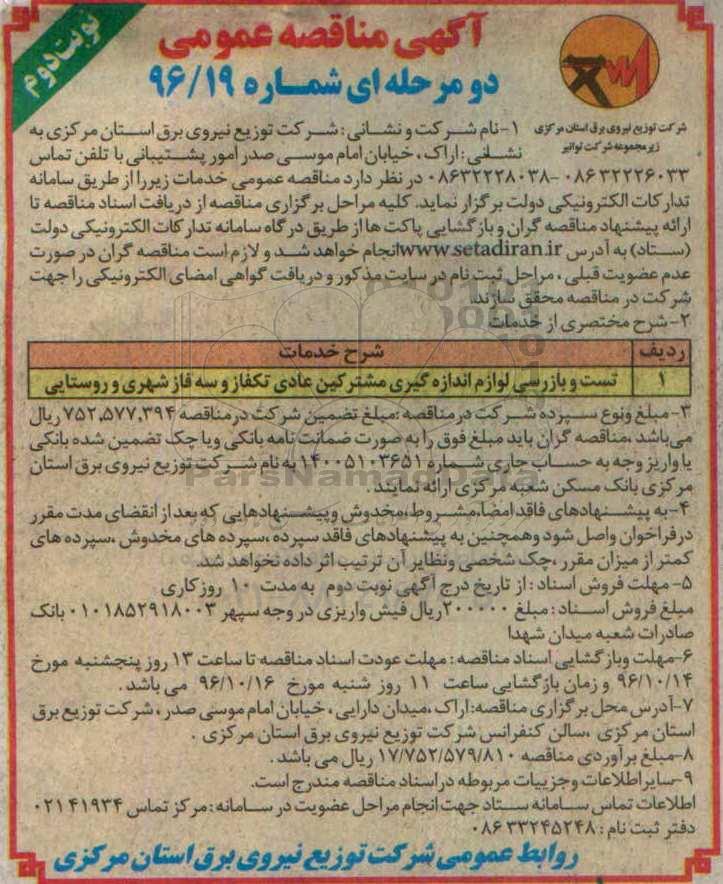 نوبت دوم
آگهی مناقصه عمومی
دو مرحله ای شماره ۹۶/۱۹
شرکت توزیع نیروی برق استان مرکزی
زیرمجموعه شرکت توانیر
۱-نام شرکت و نشانی: شرکت توزیع نیروی برق استان مرکزی به
نشانی: اراک، خیابان امام موسی صدر امور پشتیبانی با تلفن تماس
۰۸۶۳۲۲۲۶۰۳۳ -۰۸۶۳۲۲۲۸۰۳۸ در نظر دارد مناقصه عمومی خدمات زیر را از طریق سامانه
تدارکات الکترونیکی دولت برگزار نماید. کلیه مراحل برگزاری مناقصه از دریافت اسناد مناقصه تا
ارائه پیشنهاد مناقصه گران و بازگشایی پاکت ها از طریق درگاه سامانه تدارکات الکترونیکی دولت
(ستاد) به آدرس www.setadiran.ir انجام خواهد شد و لازم است مناقصه گران در صورت
عدم عضویت قبلی، مراحل ثبت نام در سایت مذکور و دریافت گواهی امضای الکترونیکی را جهت
شرکت در مناقصه محقق سازند.
۲-شرح مختصری از خدمات
ردیف شرح خدمات
۱ تست و بازرسی لوازم اندازه گیری مشترکین عادی تکفاز و سه فاز شهری و روستایی
۳-مبلغ ونوع سپرده شرکت درمناقصه :مبلغ تضمین شرکت در مناقصه ۷۵۲,۵۷۷,۳۹۴ ریال
می‌باشد ،مناقصه گران باید مبلغ فوق را به صورت ضمانت نامه بانکی ویا چک تضمین شده بانکی
یا واریز وجه به حساب جاری شماره ۱۴۰۰۵۱۰۳۶۵۱ به نام شرکت توزیع نیروی برق استان
مرکزی بانک مسکن شعبه مرکزی ارائه نمایند.
ParsNamadData
۴-به پیشنهادهای فاقد امضا،مشروط،مخدوش وپیشنهادهایی که بعد از انقضای مدت مقرر
درفراخوان واصل شود وهمچنین به پیشنهادهای فاقد سپرده ،سپرده های مخدوش ،سپرده های
کمتر از میزان مقرر ،چک شخصی ونظایر آن ترتیب اثر داده نخواهد شد.
۵-مهلت فروش اسناد : از تاریخ درج آگهی نوبت دوم به مدت ۱۰ روز کاری
مبلغ فروش اسناد : مبلغ ۲۰۰۰۰۰ ریال فیش واریزی در وجه سپهر ۰۱۰۱۸۵۲۹۱۸۰۰۳ بانک
صادرات شعبه میدان شهدا
۶-مهلت وبازگشایی اسناد مناقصه : مهلت عودت اسناد مناقصه تا ساعت ۱۳ روز پنجشنبه مورخ
۹۶/۱۰/۱۴ و زمان بازگشایی ساعت ۱۱ روز شنبه مورخ ۹۶/۱۰/۱۶ می باشد.
۷-آدرس محل برگزاری مناقصه:اراک ،میدان دارایی ، خیابان امام موسی صدر ، شرکت توزیع برق
استان مرکزی ،سالن کنفرانس شرکت توزیع نیروی برق استان مرکزی .
۸-مبلغ برآوردی مناقصه ۱۷/۷۵۲/۵۷۹/۸۱۰ ریال می باشد .
۹-سایر اطلاعات وجزییات مربوطه دراسناد مناقصه مندرج است.
اطلاعات تماس سامانه ستاد جهت انجام مراحل عضویت در سامانه : مرکز تماس ۰۲۱۴۱۹۳۴
دفتر ثبت نام : ۰۸۶۳۳۲۴۵۲۴۸
روابط عمومی شرکت توزیع نیروی برق استان مرکزی